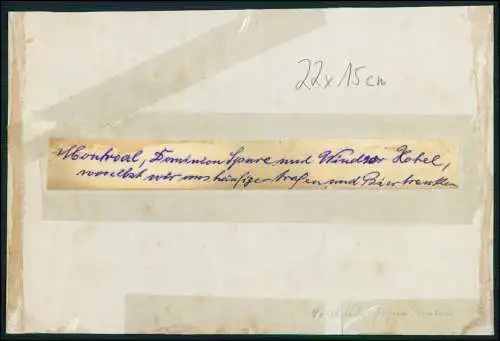 22 x 15 cm
Montreal, Dominion Square und Windsor Hotel,
woselbst wir uns häufiger trafen und Bier tranken